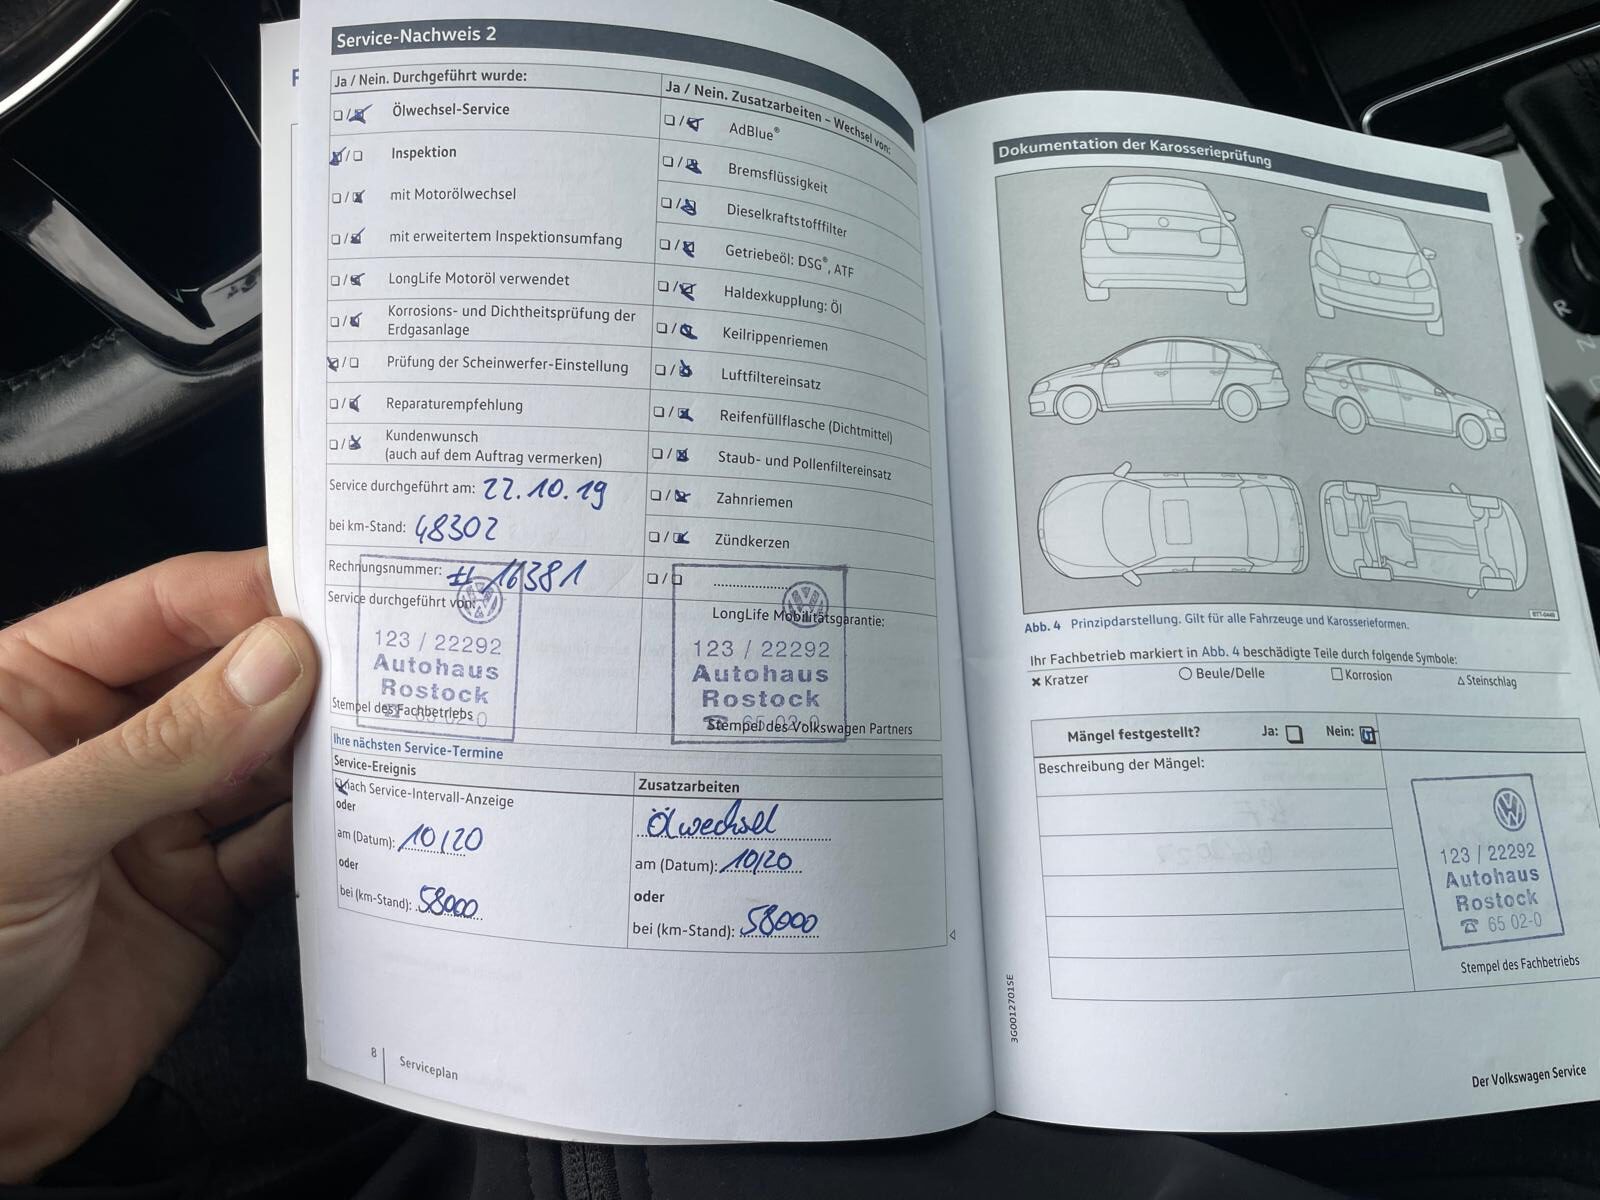 Service-Nachweis 2
Ja / Nein. Durchgeführt wurde:
Ölwechsel-Service
Inspektion
mit Motorölwechsel
mit erweitertem Inspektionsumfang
LongLife Motoröl verwendet
Korrosions- und Dichtheitsprüfung der
Erdgasanlage
Prüfung der Scheinwerfer-Einstellung
Reparaturempfehlung
Kundenwunsch
(auch auf dem Auftrag vermerken)
Service durchgeführt am: 22.10.19
bei km-Stand: 48302
Rechnungsnummer: # 16381
Service durchgeführt von:
123 / 22292
Autohaus
Rostock
65 02-0
Stempel des Fachbetriebs
Ja / Nein. Zusatzarbeiten – Wechsel von:
AdBlue®
Bremsflüssigkeit
Dieselkraftstofffilter
Getriebeöl: DSG®, ATF
Haldexkupplung: Öl
Keilrippenriemen
Luftfiltereinsatz
Reifenfüllflasche (Dichtmittel)
Staub- und Pollenfiltereinsatz
Zahnriemen
Zündkerzen
LongLife Mobilitätsgarantie:
123 / 22292
Autohaus
Rostock
☎ 65 02-0
Stempel des Volkswagen Partners
Ihre nächsten Service-Termine
Service-Ereignis
nach Service-Intervall-Anzeige
oder
am (Datum): 10/20
oder
bei (km-Stand): 58000
Zusatzarbeiten
Ölwechsel
am (Datum): 10/20
oder
bei (km-Stand): 58000
8
Serviceplan
Dokumentation der Karosserieprüfung
Abb. 4 Prinzipdarstellung. Gilt für alle Fahrzeuge und Karosserieformen.
Ihr Fachbetrieb markiert in Abb. 4 beschädigte Teile durch folgende Symbole:
× Kratzer ○ Beule/Delle □ Korrosion △ Steinschlag
Mängel festgestellt? Ja: Nein:
Beschreibung der Mängel:
123 / 22292
Autohaus
Rostock
☎ 65 02-0
Stempel des Fachbetriebs
3G0012701SE
Der Volkswagen Service
R
N